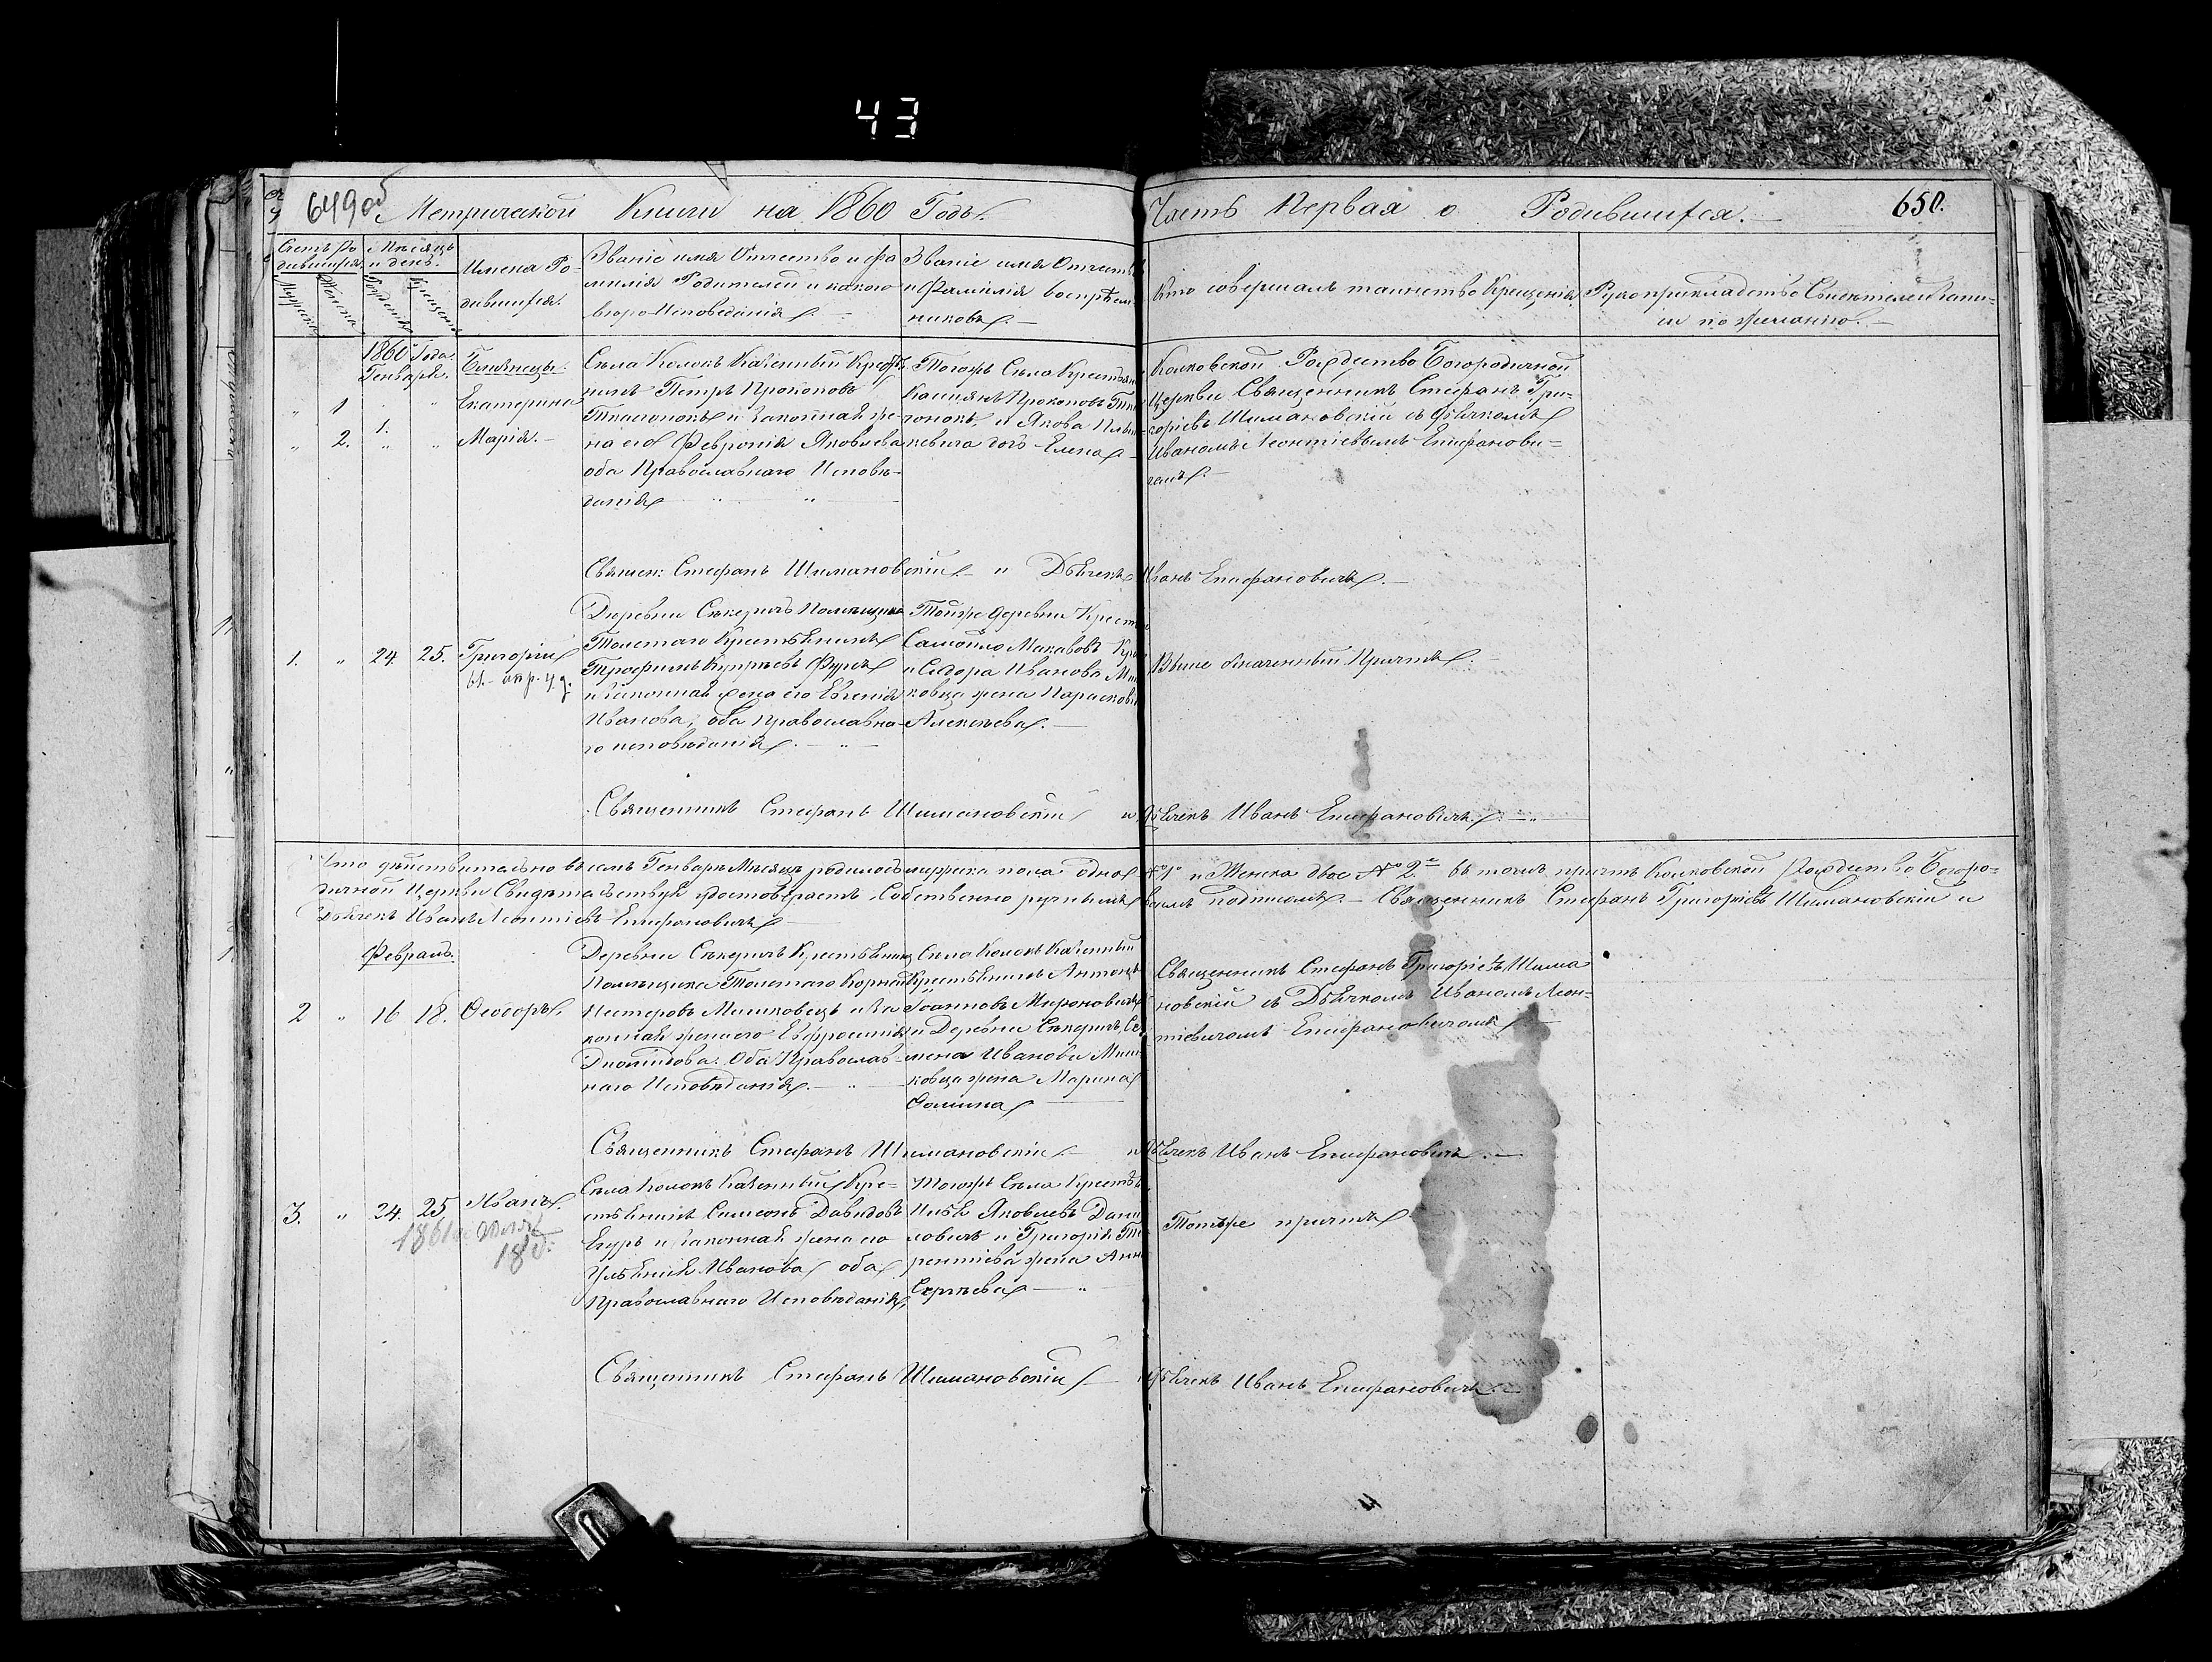 43
649 об
Метрической Книги на 1860 Годъ.
Часть Первая о Родившихся.
650.
Счетъ Ро-
дившихся.
Мѣсяцъ
и день.
Мужеска
Женска
Рожденія
Крещенія
Имена Ро-
дившихся.
Званіе имя Отчество и фа
милія Родителей и какого
вѣроисповѣданія.
Званіе имя Отчеств
и Фамилія воспріем
никовъ.
Кто совершалъ таинство Крещенія
Рукоприкладство Свидѣтелей Запи-
си по желанію.
1860 Года.
Генварь.
Близнецы.
" 1 1. " Екатерина
" 2. " " Марія.
Села Колокъ Казенный Кресть
нинъ Петръ Прокоповъ
Ткачонокъ и Законная же-
на его Февронія Яковлева
оба Православнаго Исповѣ-
данія
Тогожъ Села Крестьян
Касіянъ Прокоповъ Тка
чонокъ и Якова
кевича дочь Елена
Колковской Рождество Богородичной
Церкви Священникъ Стефанъ Гри-
горіевъ Шимановскій съ Дьячкомъ
Иваномъ Леонтіевымъ Епифанови-
чемъ.
Священ: Стефанъ Шимановскій и Дьячекъ Иванъ Епифановичъ.
1. " 24. 25. Григорій
61.- апр. 4 д.
Деревни Сѣкеричъ Помѣщика
Толстаго Крестьянинъ
Трофимъ Купріевъ Фурсъ
и законная жена его Евгенія
Иванова, оба Православна-
го исповѣданія.
Тойже деревни Крест
Самойло Макавовъ
и Сидора Иванова Ми
ковца жена Парасковія
Алексѣева.
Выше означенный Причтъ.
Священникъ Стефанъ Шимановскій и Дьячекъ Иванъ Епифановичъ.
Что дѣйствительно въ семъ Генварѣ Мѣсяцѣ родилось мужеска пола одно №1º и Женска двое №2.º въ томъ причтъ Колковской Рождество Богоро-
дичной Церкви Свидѣтельствуя удостовѣряетъ Собственно ручнымъ своимъ подписомъ. Священникъ Стефанъ Григоріевъ Шимановскій и
Дьячекъ Иванъ Леонтіевъ Епифановичъ
Февраль.
2 " 16 18. Ѳеодоръ.
Деревни Сѣкеричъ Крестьянинъ
Помѣщика Толстаго Корній
Нестеровъ Мишковецъ и За
конная жена его Евфросинія
Діомидова. Оба Православ-
наго Исповѣданія.
Села Колокъ Казенный
Крестьянинъ Антонъ
Іоанновъ Мироновичъ
и Деревни Сѣкеричъ Се
мена Иванова Миш
ковца жена Марина
Ѳомина
Священникъ Стефанъ Григоріевъ Шима
новскій съ Дьячкомъ Иваномъ Леон-
тіевичомъ Епифановичомъ
Священникъ Стефанъ Шимановскій и Дьячекъ Иванъ Епифановичъ.
3. " 24. 25 Иванъ.
1861 г. Іюля
18 д.
Села Колокъ Казенный Кре-
стьянинъ Симеонъ Давидовъ
Егуръ и законная жена его
Ульянія Иванова оба
Православнаго Исповѣданія,
Тогожъ Села Крестья
Илья Яковлевъ Дани
ловичъ и Григорія Те
рентіева жена Анн
Сергѣева
Тотъже причтъ
Священникъ Стефанъ Шимановскій и Дьячекъ Иванъ Епифановичъ.